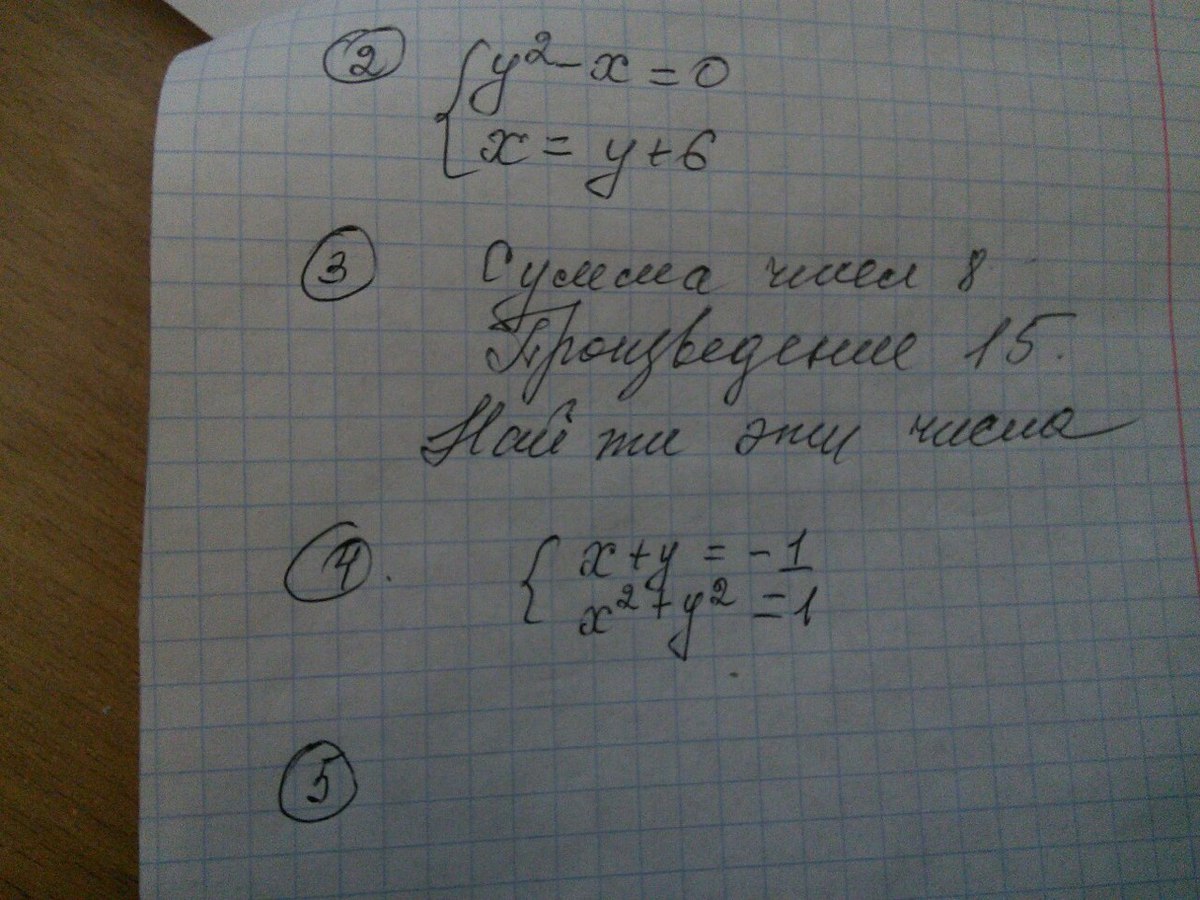 ② { y² - x = 0
x = y + 6
③ Сумма чисел 8
Произведение 15.
Найти эти числа
④. { x + y = -1
x² + y² = 1
⑤